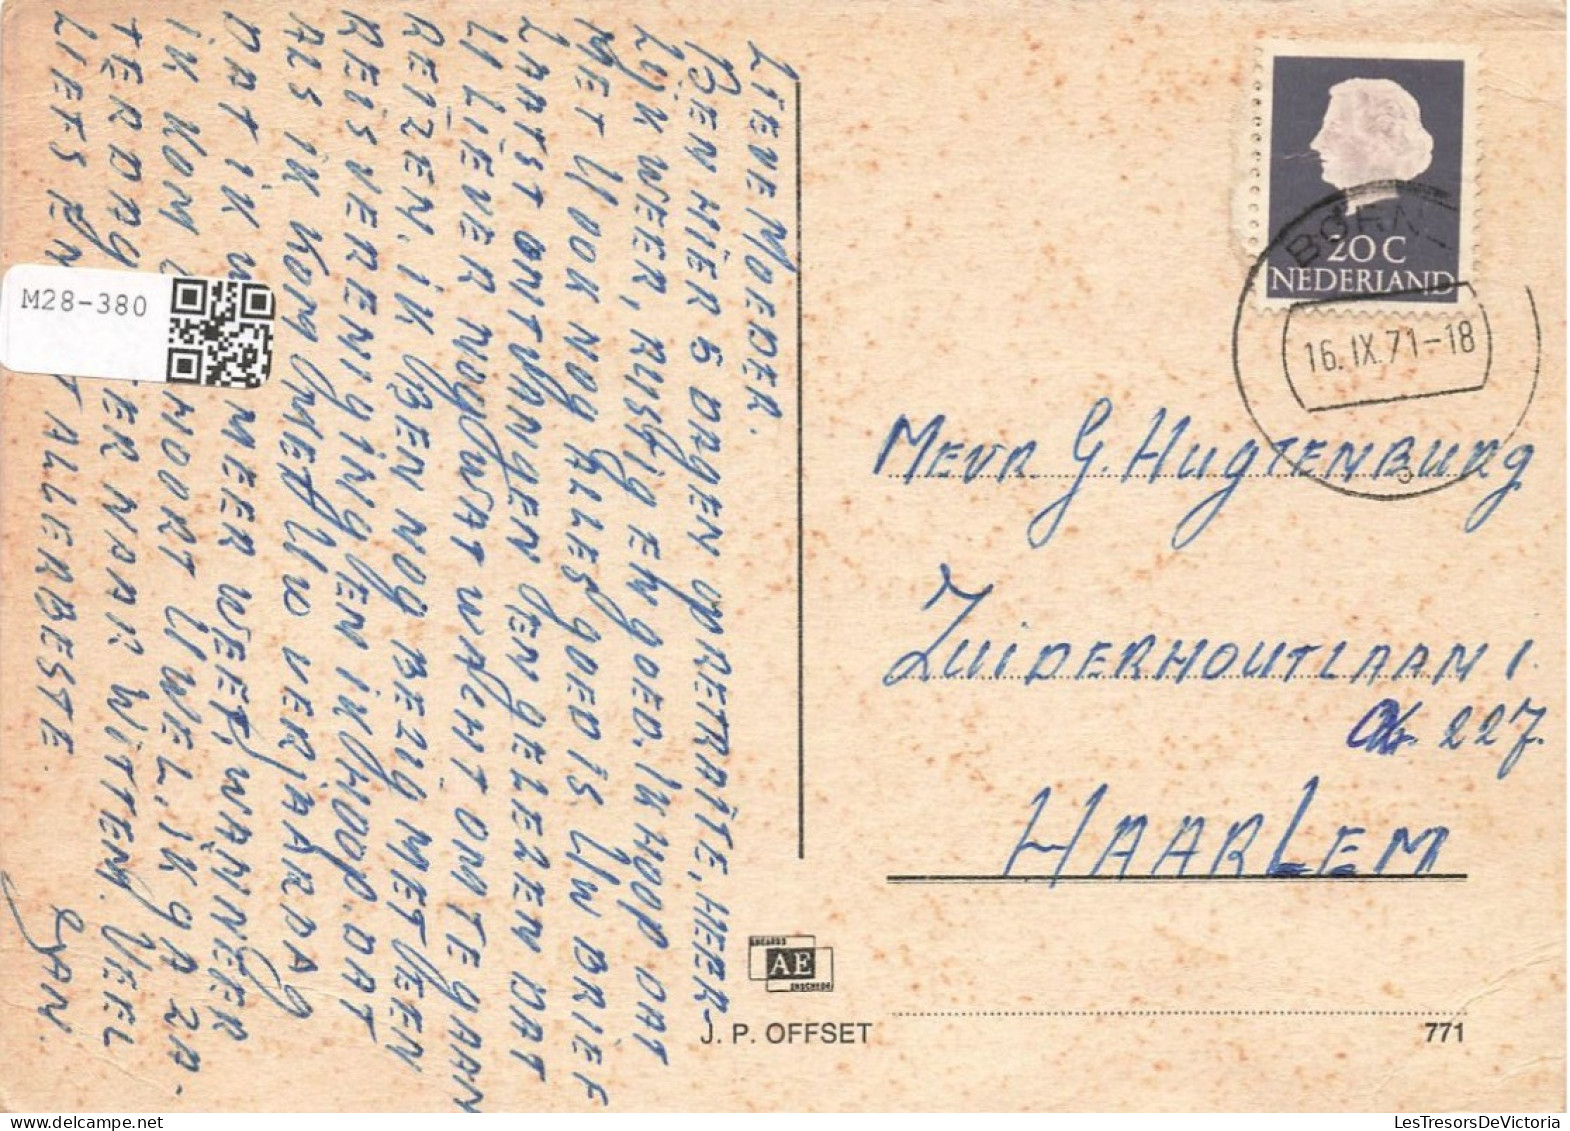 LIEVE MOEDER.
BEN HIER 5 DAGEN OP RETRAÏTE, HEER-
LYK WEER, RUSTIG EN GOED. IK HOOP DAT
MET U OOK NOG ALLES GOED IS UW BRIEF
LAATST ONTVANGEN EN GELEZEN DAT
U LIEVER NOG WAT WACHT OM TE GAAN
REIZEN. IK BEN NOG BEZIG MET EEN
REISVERENIGING EN IK HOOP. DAT
ALS IK KOM MET UW VERJAARDAG
DAT IK MEER WEET, WANNEER
IK KOM HOORT U WEL. IK GA ZA-
TERDAG ER NAAR WITTEM. VEEL
LIEFS EN T ALLERBESTE.
JAN.
M28-380
20 C
NEDERLAND
BORNE
16. IX. 71-18
MEVR G. HUGTENBURG
ZUIDERHOUTLAAN 1.
227.
HAARLEM
AE
ENSCHEDE
J. P. OFFSET
771
LesTresorsDeVictoria